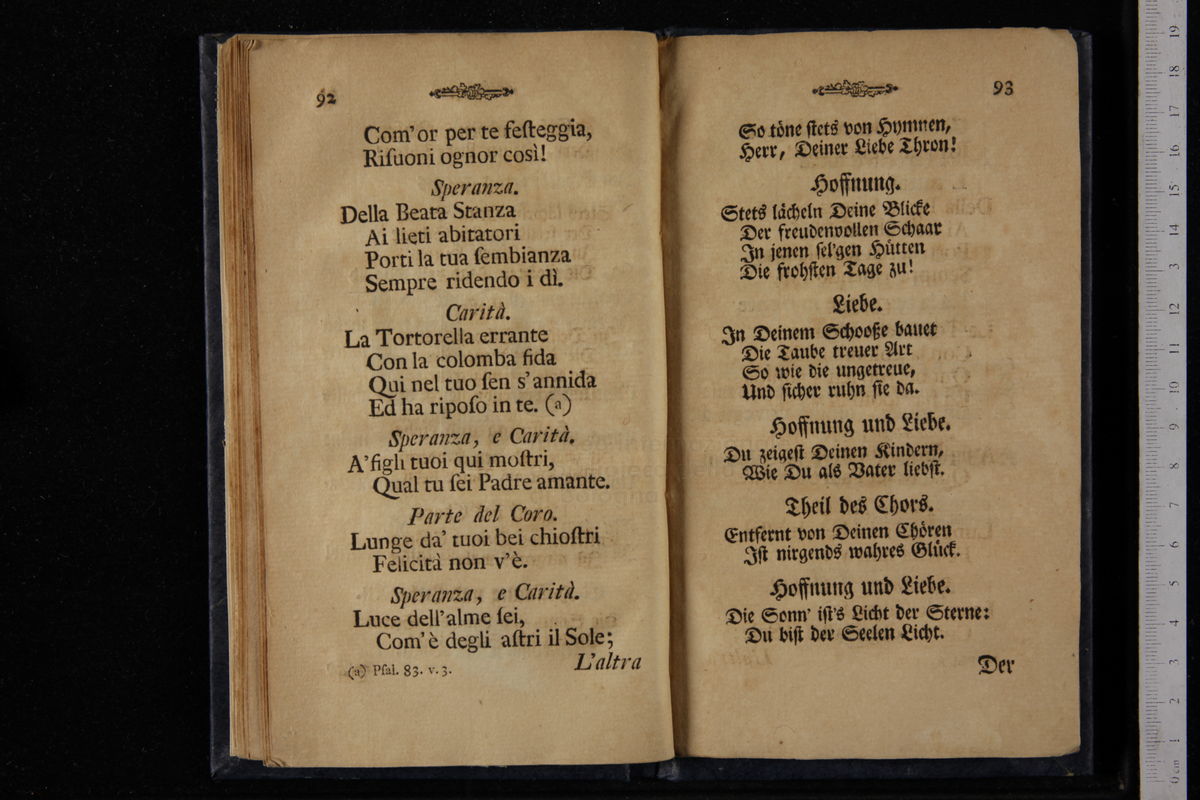 92
Com'or per te feſteggia,
Riſuoni ognor così!
Speranza.
Della Beata Stanza
Ai lieti abitatori
Porti la tua ſembianza
Sempre ridendo i dì.
Carità.
La Tortorella errante
Con la colomba fida
Qui nel tuo ſen s'annida
Ed ha ripoſo in te. (a)
Speranza, e Carità.
A'figli tuoi qui moſtri,
Qual tu ſei Padre amante.
Parte del Coro.
Lunge da' tuoi bei chioſtri
Felicità non v'è.
Speranza, e Carità.
Luce dell'alme ſei,
Com'è degli aſtri il Sole;
L'altra
(a) Pſal. 83. v. 3.
93
So töne ſtets von Hymnen,
Herr, Deiner Liebe Thron!
Hoffnung.
Stets lächeln Deine Blicke
Der freudenvollen Schaar
In jenen ſel'gen Hütten
Die frohſten Tage zu!
Liebe.
In Deinem Schooße bauet
Die Taube treuer Art
So wie die ungetreue,
Und ſicher ruhn ſie da.
Hoffnung und Liebe.
Du zeigeſt Deinen Kindern,
Wie Du als Vater liebſt.
Theil des Chors.
Entfernt von Deinen Chören
Iſt nirgends wahres Glück.
Hoffnung und Liebe.
Die Sonn' iſt's Licht der Sterne:
Du biſt der Seelen Licht.
Der
0 cm 1 2 3 4 5 6 7 8 9 10 11 12 13 14 15 16 17 18 19